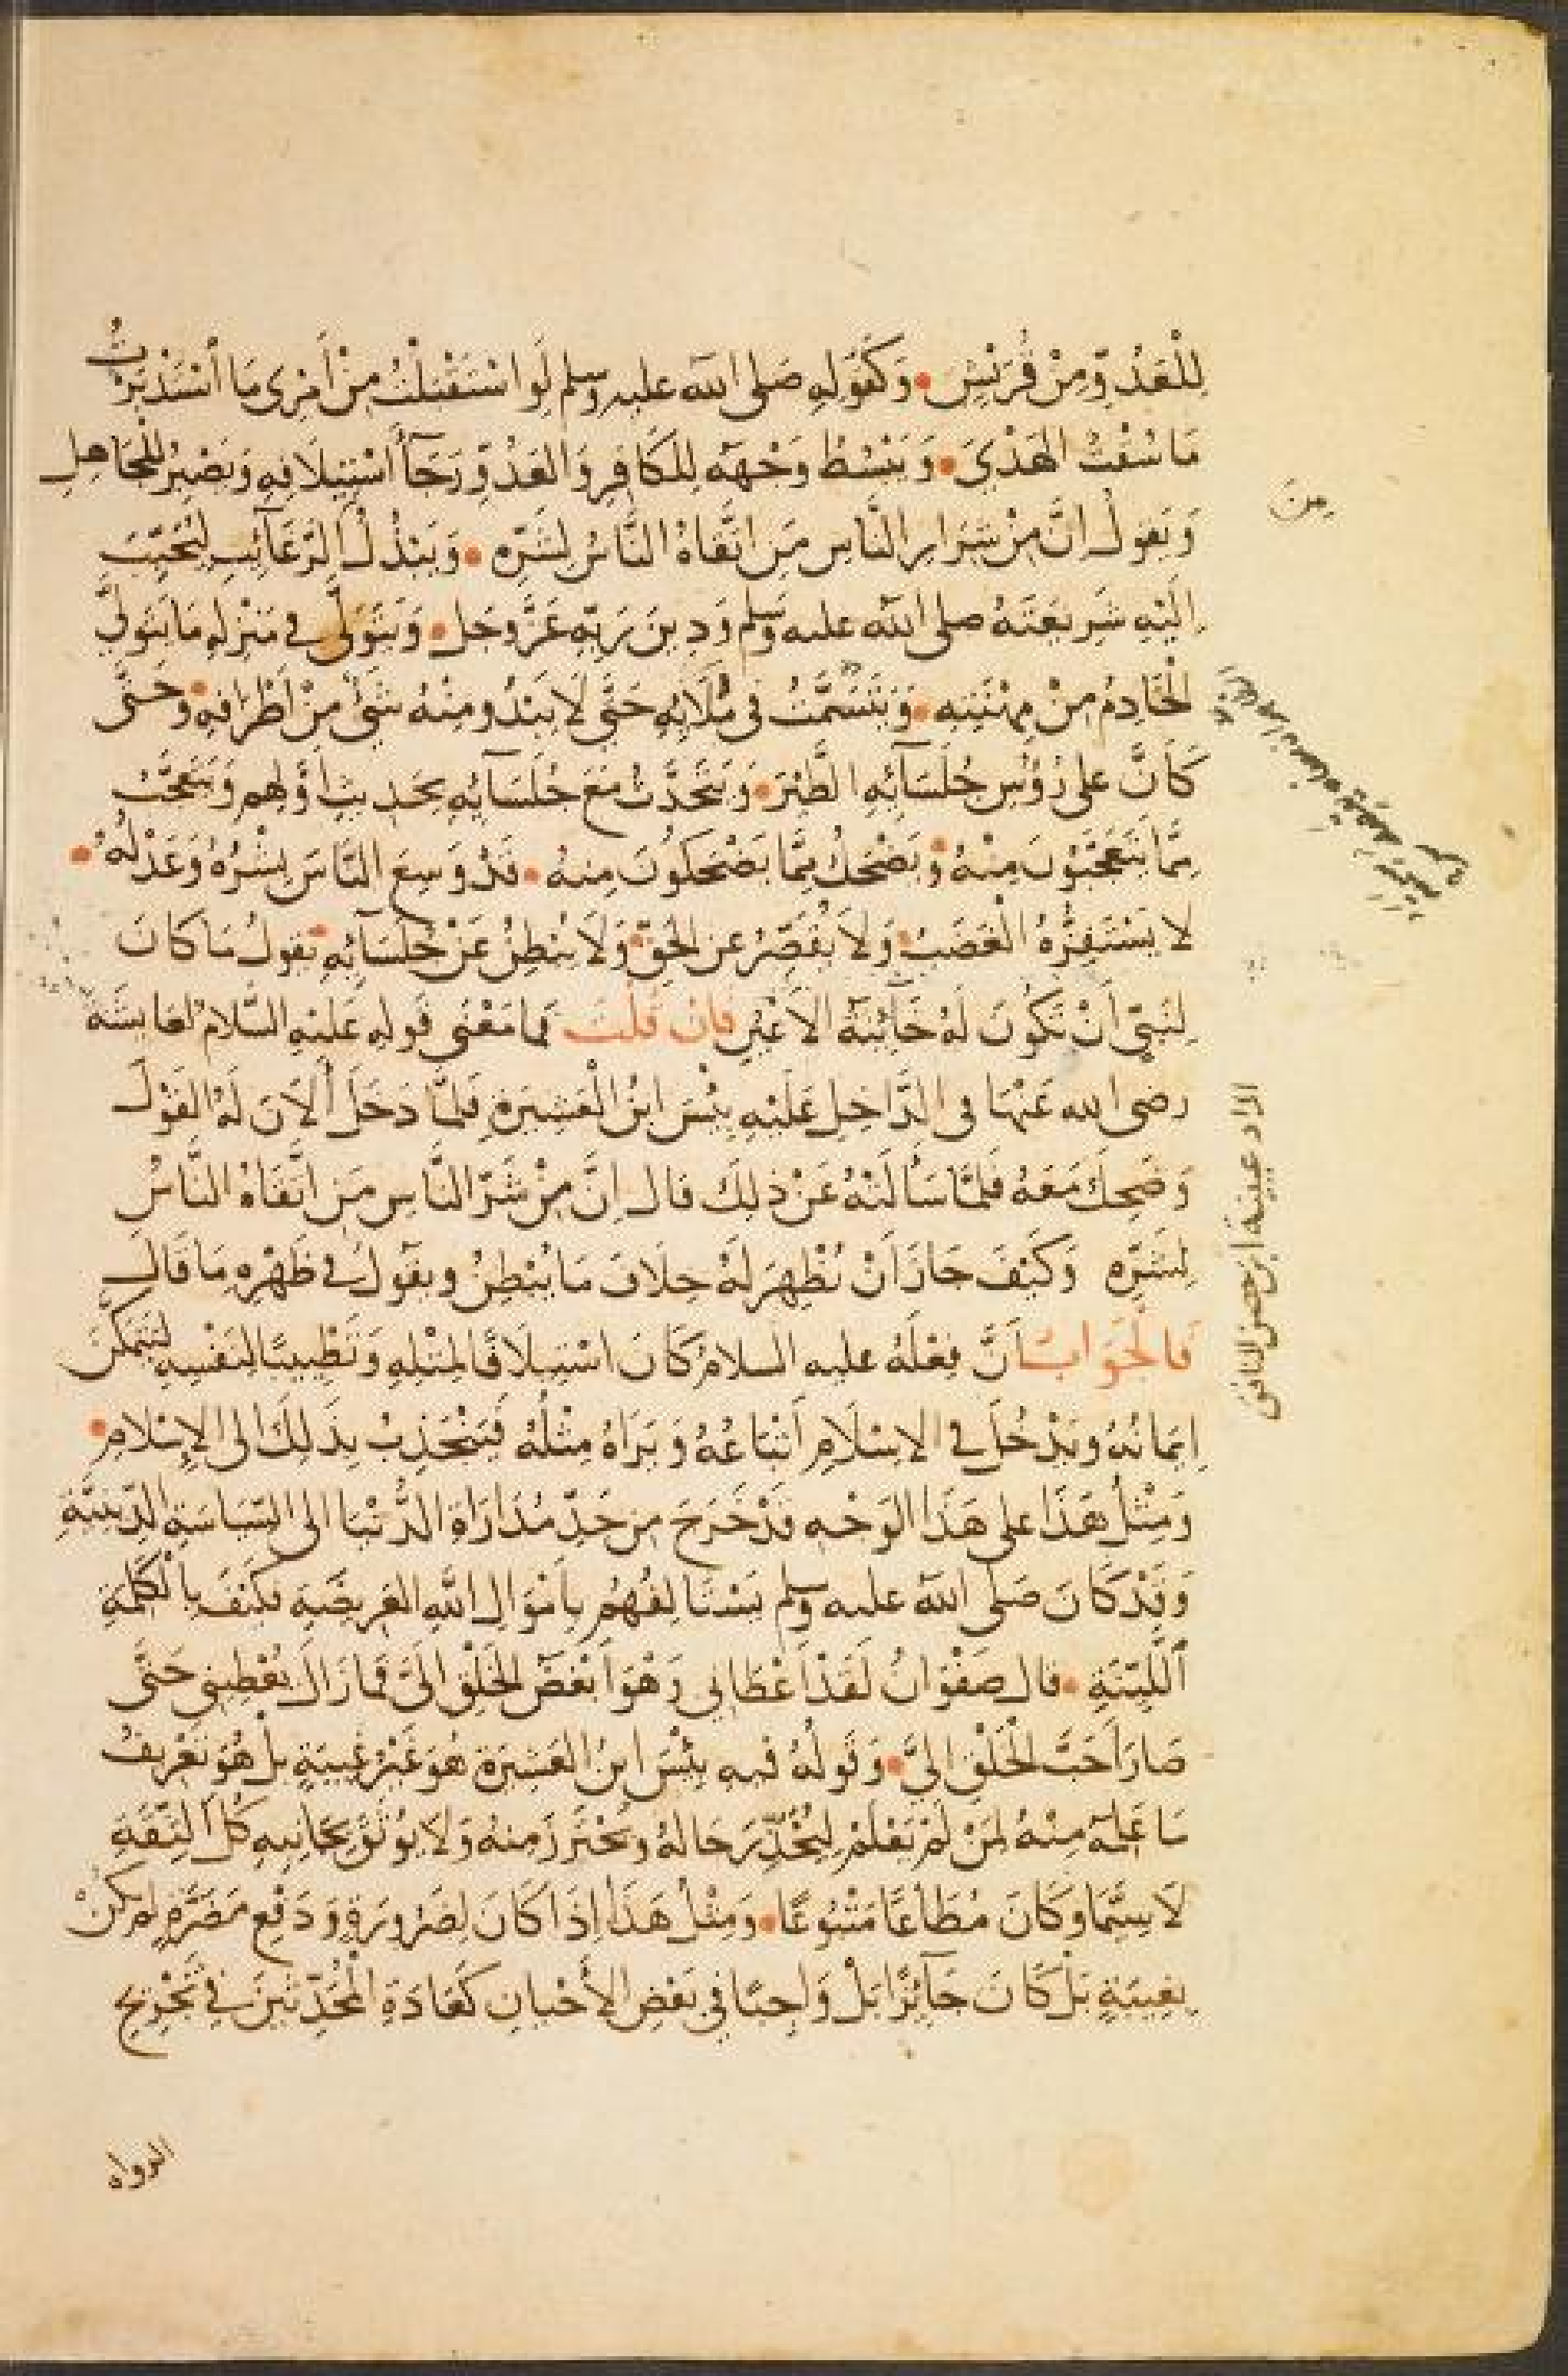 لِلْعَدُوِّ مِنْ قُرَيْشٍ • وَكَقَوْلِهِ صَلى الله عليه وسلم لَوِ اسْتَقْبَلْتُ مِنْ أَمْرِي مَا اسْتَدْبَرْتُ
مَا سُقْتُ الهَدْيَ • وَيَبْسُطُ وَجْهَهُ لِلكَافِرِ وَالعَدُوِّ رَجَآءَ اسْتِيلَافِهِ وَيَصْبِرُ لِلْجَاهِلِ
وَيَقولُ إِنَّ مِنْ شِرَارِ النَّاسِ مَنِ اتَّقَاهُ النَّاسُ لِشَرِّهِ • وَيَبْذُلُ الرَّغَآئِبَ لِيُحَبِّبَ
إِلَيْهِ شَرِيعَتَهُ صلى الله عليه وسلم وَدِينَ رَبِّهِ عَزَّ وجل • وَيَتَوَلَّى في مَنْزِلِهِ مَا يَتَوَلَّى
الْخَادِمُ مِنْ مِهْنَتِهِ • وَيَتَسَمَّتُ فِي مُلَآئِهِ حَتَّى لَا يَبْدُو مِنْهُ شَيْءٌ مِنْ أَطْرَافِهِ • وَحَتَّى
كَأَنَّ على رُؤُسِ جُلَسَآئِهِ الطَّيْرَ • وَيَتَحَدَّثُ مَعَ جُلَسَائِهِ بحَدِيثِ أَوَّلِهِم وَيَتَعَجَّبُ
مِمَّا يَتَعَجَّبُونَ مِنْهُ • وَيَضْحَكُ مِمَّا يَضْحَكُونَ مِنهُ • قَدْ وَسِعَ النَّاسَ بِشْرُهُ وَعَدْلُهُ •
لا يَسْتَفِزُّهُ الْغَضَبُ • وَلَا يُقَصِّرُ عن الحَقِّ • وَلَا يُبْطِنُ عَنْ جُلَسَآئِهِ • يَقولُ مَا كَانَ
لِنَبِيٍّ أَنْ تَكُونَ لَهُ خَآئِنَةُ الأَعْيُنِ فَإِنْ قُلْتَ فَما مَعْنَى قَولِهِ عَلَيْهِ السَّلَامُ لِعَايشَةَ
رضى الله عَنْهَا فى الدَّاخِلِ عَلَيْهِ بِئْسَ ابْنُ الْعَشِيرَةِ فَلمَّا دَخَلَ أَلَانَ لَهُ القَوْلَ
وَضَحِكَ مَعَهُ فَلمَّا سَأَلَتْهُ عَنْ ذلِكَ قال إِنَّ مِنْ شَرِّ النَّاسِ مَنِ اتَّقَاهُ النَّاسُ
لِشَرِّهِ وَكَيْفَ جَازَ أَنْ يُظْهِرَ لَهُ خِلَافَ مَا يُبْطِنُ ويقُولُ فِي ظَهْرِهِ مَا قَالَ
فَالجَوَابُ أَنَّ فِعْلَهُ عليه السلامُ كَانَ اسْتِيلَافًا لِمِثْلِهِ وَتَطْيِيبًا لِنَفْسِهِ لِيَتَمَكَّنَ
إِيمَانُهُ وَيَدْخُلَ فِي الاِسْلَامِ أَتْبَاعُهُ وَيَرَاهُ مِثْلُهُ فَيَنْجَذِبُ بِذَلِكَ إِلى الإِسْلَامِ •
وَمِثْلُ هَذَا على هَذَا الوَجْهِ قَدْ خَرَجَ من حَدِّ مُدَارَاةِ الدُّنْيَا الى السِّيَاسَةِ الدِّينِيَّةِ
وَقَدْ كَانَ صَلَّى الله عليه وسلم يَسْتَألِفُهُمْ بِأَمْوَالِ اللهِ العَرِيضَةِ فكَيْفَ بِالْكَلِمَةِ
اللَّيِّنَةِ • قال صَفْوَانُ لَقَدْ أَعْطَانِي وَهُوَ أَبْغَضُ الْخَلْقِ إِلَيَّ فَمَا زَالَ يُعْطِينِي حَتَّى
صَارَ أَحَبَّ الْخَلْقِ إِليَّ • وَقَولُهُ فيه بِئْسَ ابنُ العَشِيرَةِ هُوَ غَيْرُ غِيبَةٍ بلْ هُوَ تَعْرِيفُ
مَا عَلِمَهُ مِنْهُ لِمَنْ لَمْ يَعْلَمْ لِيُحْذَرَ حَالُهُ وَيُحْتَرَزَ مِنهُ وَلَا يُوثَقَ بجَانِبِهِ كُلَّ الثِّقَةِ
لَا سِيَّمَا وَكَانَ مُطَاعًا مَتْبُوعًا • وَمِثْلُ هَذَا إِذَا كَانَ لِضَرُورَةٍ وَدَفْعِ مَضَرَّةٍ لم يكُنْ
بِغِيبَةٍ بَلْ كَانَ جَآئِزًا بَلْ وَاجِبًا فِي بَعْضِ الأَحْيَانِ كَعَادَةِ الْمُحَدِّثِينَ فِي تَجْرِيحِ
الرواه
مِنَ
اراد عيينة ابن حصن الفزارى